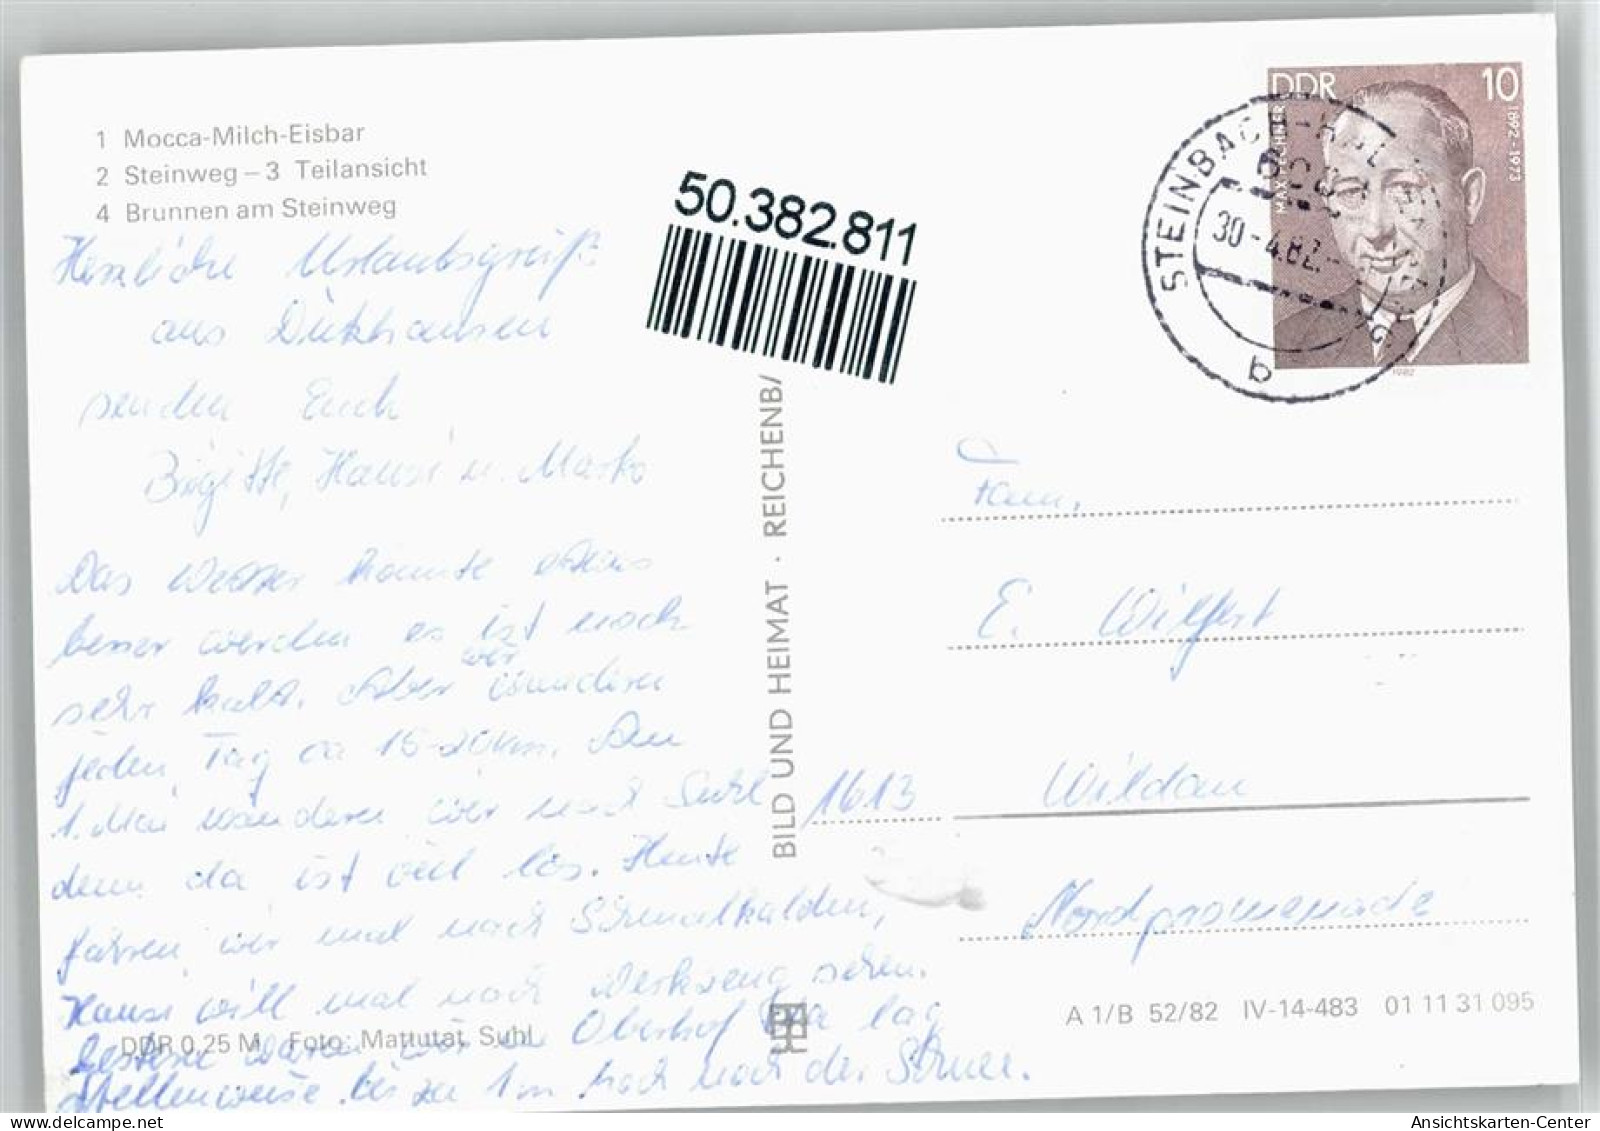 1 Mocca-Milch-Eisbar
2 Steinweg – 3 Teilansicht
4 Brunnen am Steinweg
Herzliche Urlaubsgrüße
aus
senden Euch
Birgitte, Hansi u. Marko
Das Wetter könnte etwas
besser werden es ist noch
sehr kalt. Aber wir wandern
jeden Tag ca 15-20km. Am
1. Mai wandern wir nach Suhl
denn da ist viel los. Heute
fahren wir mal nach Schmalkalden,
Hansi will mal nach Werkzeug sehen.
Gestern waren wir in Oberhof da lag
stellenweise bis zu 1m hoch noch der Schnee.
DDR 0,25 M Foto: Mattutat, Suhl
50.382.811
BILD UND HEIMAT · REICHENB/
DDR 10
1892-1973
1982
STEINBACH-HALLENBERG
30.-4.82.
b
Fam.
E. Wilfert
1613 Wildau
Nordpromenade
A 1/B 52/82 IV-14-483 01 11 31 095
Ansichtskarten-Center